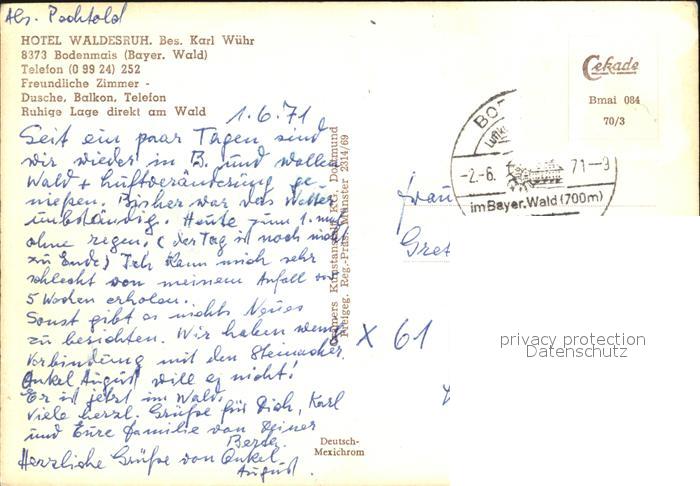 Abs. Pachtold
HOTEL WALDESRUH. Bes. Karl Wühr
8373 Bodenmais (Bayer. Wald)
Telefon (0 99 24) 252
Freundliche Zimmer -
Dusche, Balkon, Telefon
Ruhige Lage direkt am Wald
1.6.71
Seit ein paar Tagen sind
wir wieder in B. und wollen
Wald + Luftveränderung ge-
nießen. Bisher war das Wetter
unbeständig. Heute zum 1. mal
ohne regen. (der Tag ist noch nicht
zu Ende) Ich kann mich sehr
schlecht von meinem Anfall vor
5 Wochen erholen.
Sonst gibt es nichts Neues
zu berichten. Wir haben wenig
Verbindung mit den Steinacher.
Onkel August will es nicht!
Er ist jetzt im Wald.
Viele herzl. Grüße für Dich, Karl
und Eure Familie von Deiner
Herzliche Grüße von Onkel
August.
Cramers Kunstanstalt KG. Dortmund
Freigeg. Reg.-Präs. Münster 2314/69
Deutsch-
Mexichrom
Cekade
Bmai 084
70/3
BO
Luftk
-2.-6. 71--9
im Bayer. Wald (700m)
Frau
Gret
x 61
privacy protection
Datenschutz